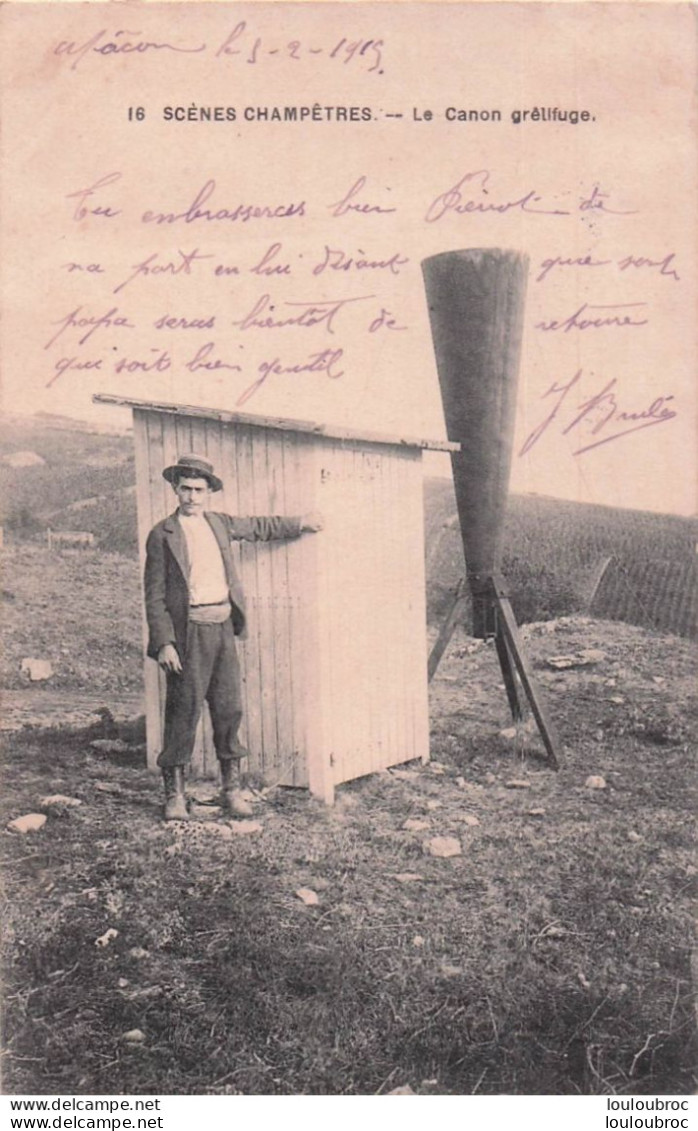 Mâcon le 5-2-1915
16 SCÈNES CHAMPÊTRES. -- Le Canon grêlifuge.
Tu embrasseras bien Pierrot de
na part en lui disant que sont
papa seras bientôt de retoure
qui soit bien gentil
J Brulé
www.delcampe.net
louloubroc
louloubroc